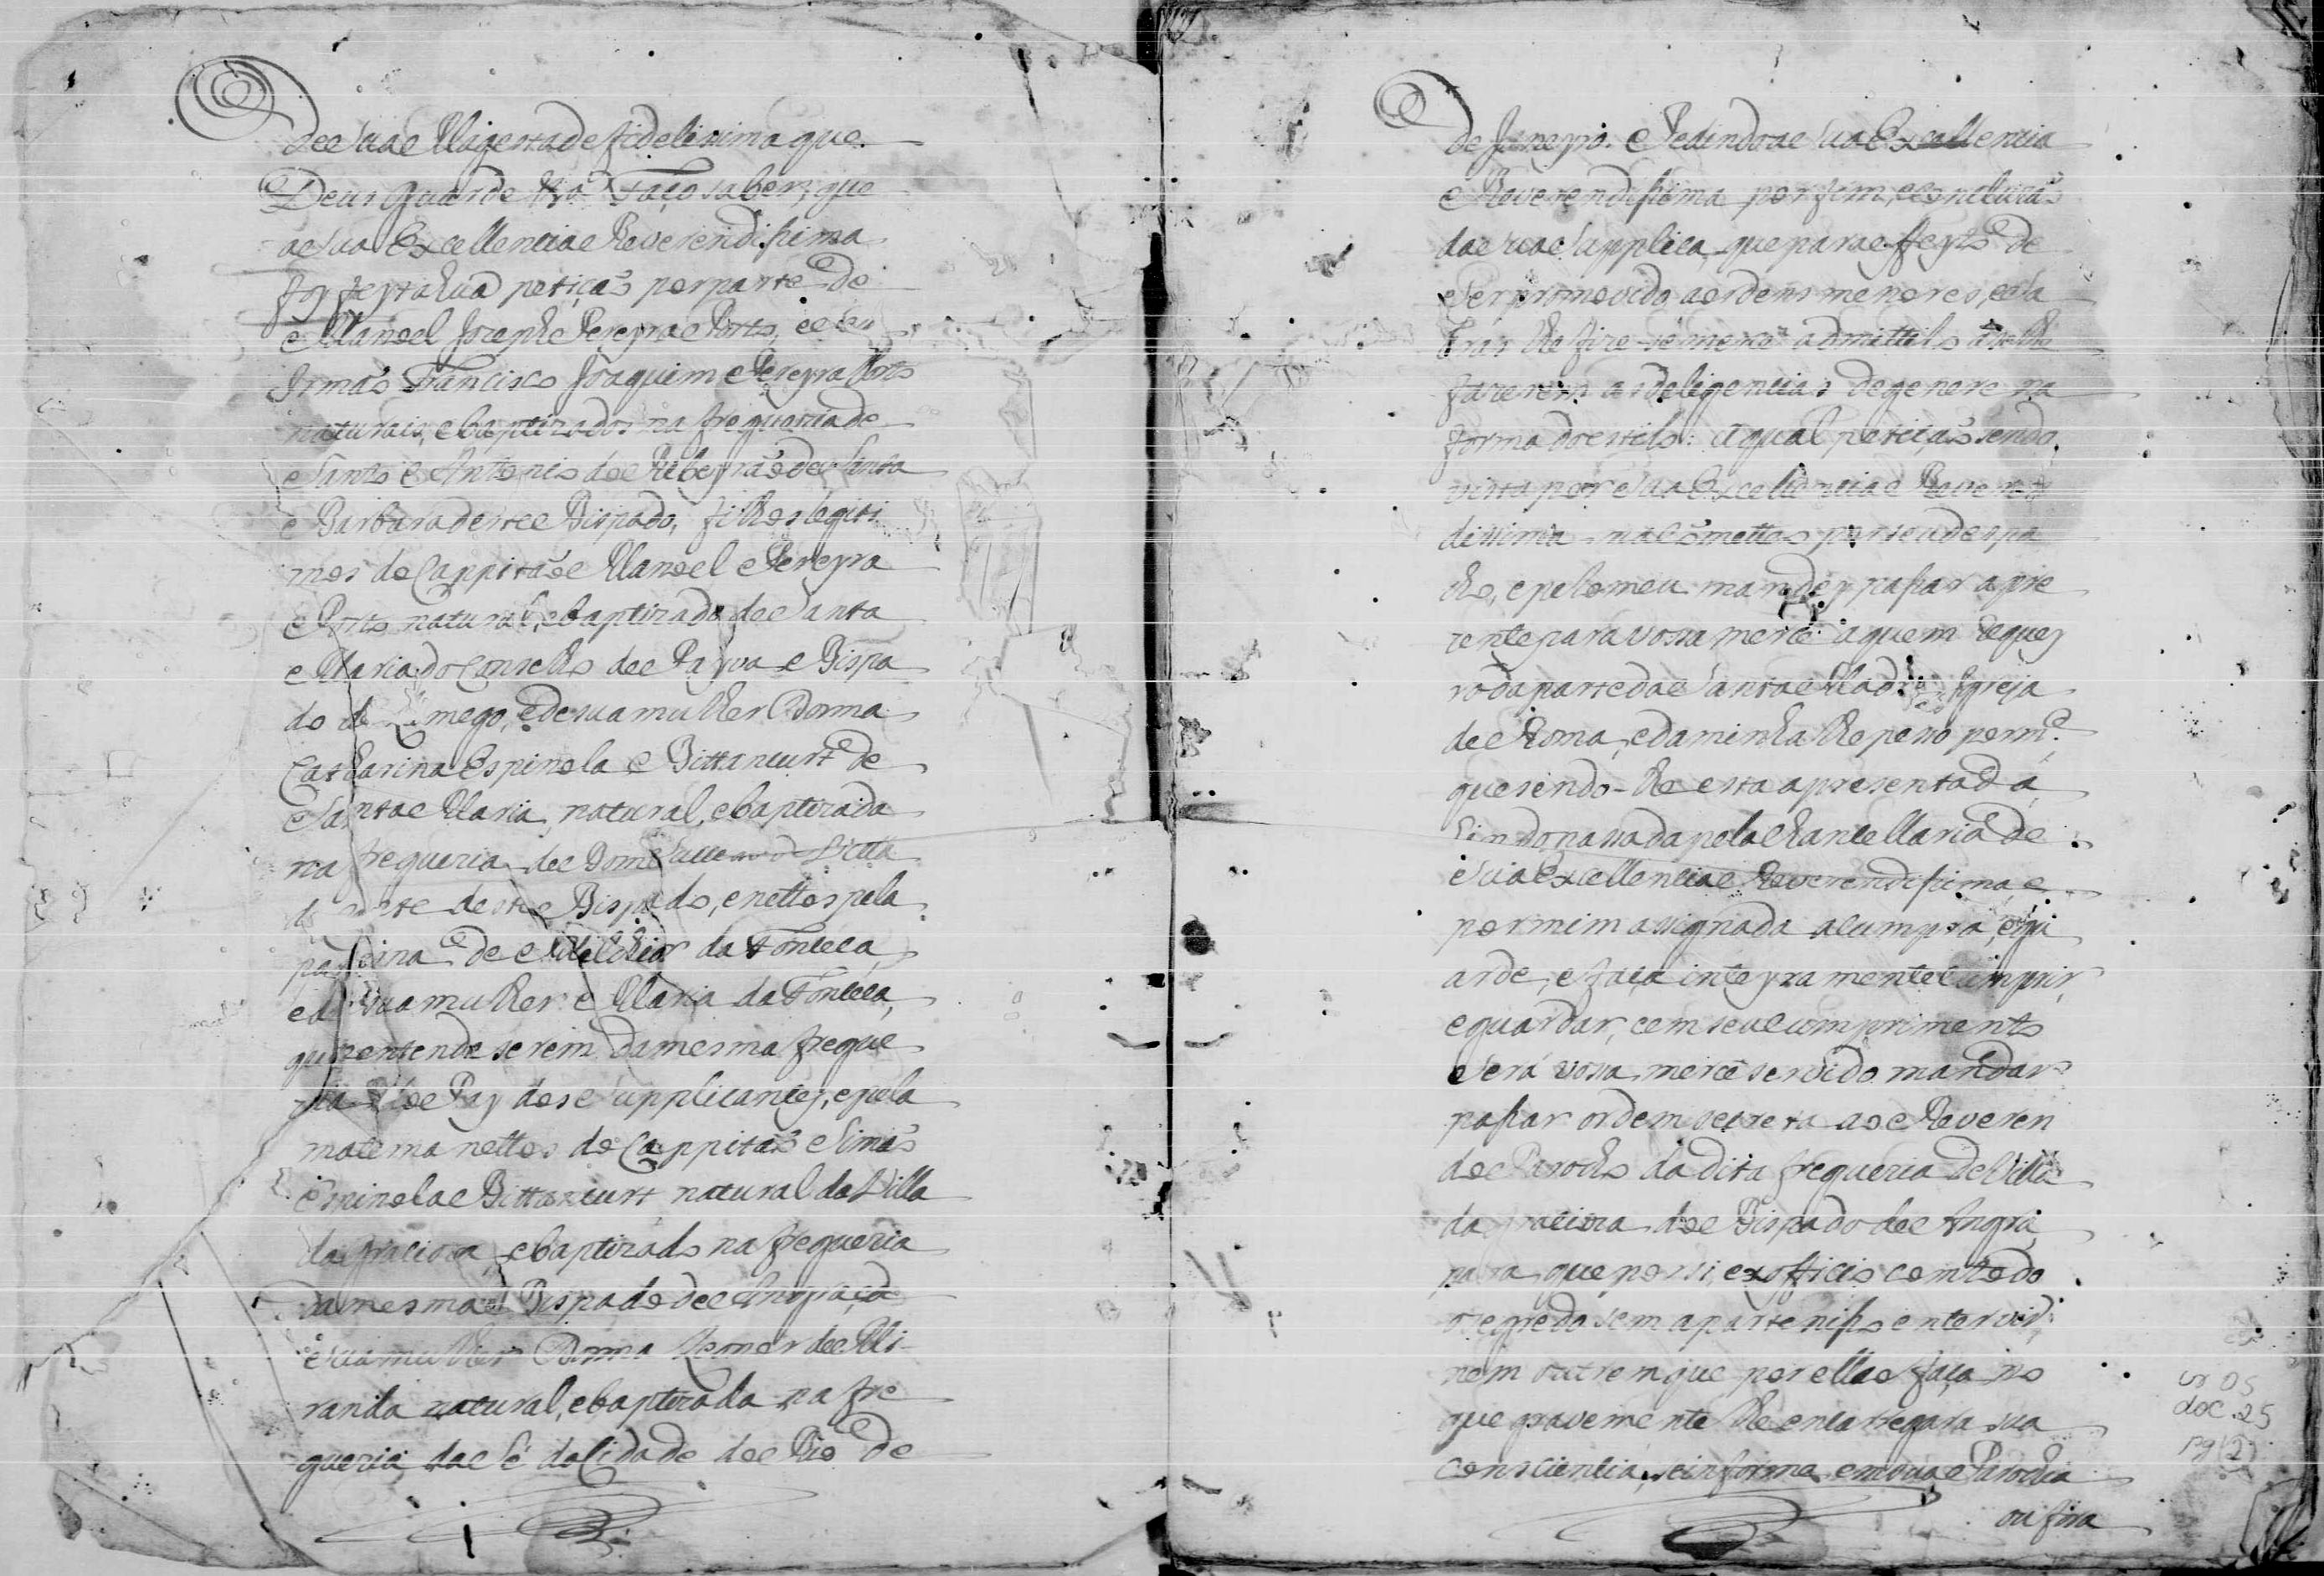 de Sua Magestade fidelissima que
Deus guarde &ª Faço saber, que
a Sua Excellencia Reverendissima
foy feyta hua petiçaõ por parte de
Manoel Joseph Pereyra Porto, e seu
Irmaõ Francisco Joaquim Pereyra Porto
naturais, e baptizados na freguezia de
Santo Antonio do Ribeyraõ de Santa
Barbara deste Bispado, filhos legiti
mos do Cappitaõ Manoel Pereyra
Porto natural, e baptizado de Santa
Maria do Conselho de Payva Bispa
do de Lamego, e de sua mulher Donna
Catharina Espinola e Bittancurt de
Santa Maria, natural, e baptizada
na freguezia de Bom Successo
deste Bispado, e nettos pela
paterna de Melchior da Fonceca,
e de sua mulher Maria da Fonceca,
que entende serem da mesma fregue
zia do Pay dos Supplicantes, e pela
materna nettos do Cappitaõ Simaõ
Espinola e Bittancurt natural da Villa
da graciosa, e baptizado na freguezia
da mesma Bispado de Angra, e de
sua mulher Donna Leonor de Mi-
randa natural, e baptizada na fre
guezia da Sé da Cidade do Rio de
de Janeyro. E Pedindo a Sua Excellencia
Reverendissima por fim, e concluzaõ
da sua Supplica, que para effeyto de
Ser promovido a ordens menores, e Sa
cras lhe fizesse merce admittilo a se lhe
fazerem as deligencias de genere na
forma do estilo: A qual petiçaõ sendo
vista por Sua Excelencia Reveren
dissima ma cõmetteo por seu despa
cho, e pelo meu mandey passar a pre
zente para vossa merce a quem requey
ro da parte da Santa Madre Igreja
de Roma, e da minha lhe pesso por mce.
que sendo-lhe esta apresentada,
sindo passada pela Chancellaria de
Sua Excellencia Reverendissima, e
por mim assignada a cumpra, e gu
arde, e faça inteyramente cumprir,
e guardar, e em seu cumprimento
Será vossa merce servido mandar
passar ordem secreta ao Reveren
do Parocho da dita freguezia de Villa
da graciosa do Bispado de Angra,
para que por si, ex officio com todo
o segredo sem a parte nisso entervir,
nem outrem que por ella o faça no
que gravemente lhe encarregara sua
consciencia, se informe em sua Parochia
ou fora
cx 05
doc. 25
pg (2)